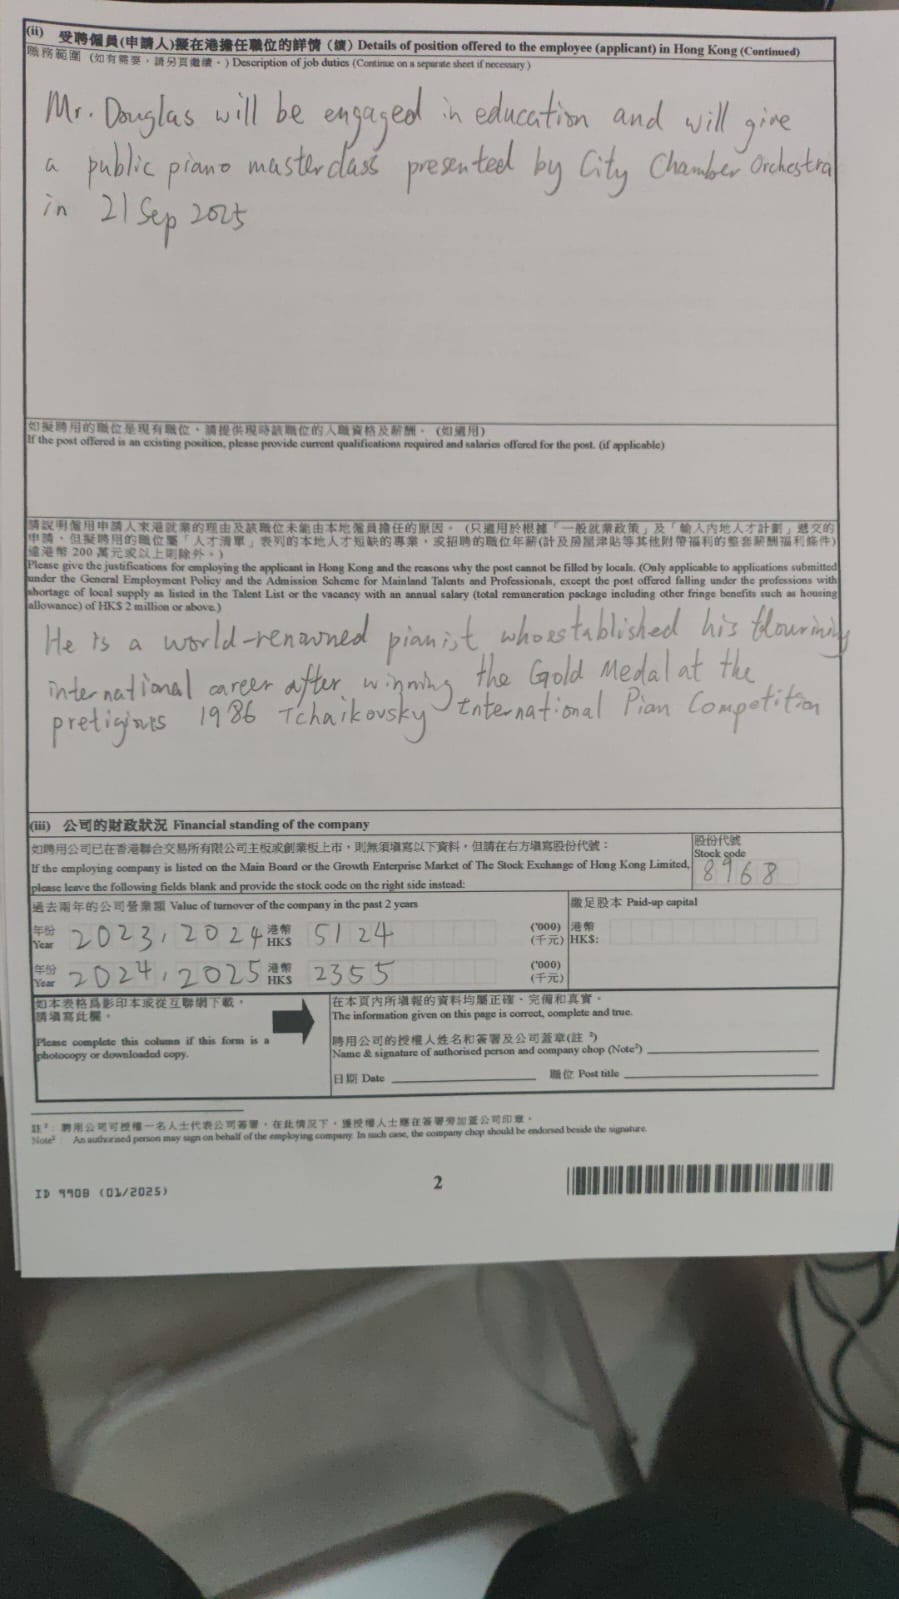 (ii) 受聘僱員(申請人)擬在港擔任職位的詳情（續）Details of position offered to the employee (applicant) in Hong Kong (Continued)
職務範圍（如有需要，請另頁繼續。）Description of job duties (Continue on a separate sheet if necessary.)
Mr. Douglas will be engaged in education and will give
a public piano masterclass presented by City Chamber Orchestra
in 21 Sep 2025
如擬聘用的職位是現有職位，請提供現時該職位的入職資格及薪酬。（如適用）
If the post offered is an existing position, please provide current qualifications required and salaries offered for the post. (if applicable)
請說明僱用申請人來港就業的理由及該職位未能由本地僱員擔任的原因。（只適用於根據「一般就業政策」及「輸入內地人才計劃」遞交的
申請，但擬聘用的職位屬「人才清單」表列的本地人才短缺的專業，或招聘的職位年薪(計及房屋津貼等其他附帶福利的整套薪酬福利條件)
達港幣 200 萬元或以上則除外。）
Please give the justifications for employing the applicant in Hong Kong and the reasons why the post cannot be filled by locals. (Only applicable to applications submitted
under the General Employment Policy and the Admission Scheme for Mainland Talents and Professionals, except the post offered falling under the professions with
shortage of local supply as listed in the Talent List or the vacancy with an annual salary (total remuneration package including other fringe benefits such as housing
allowance) of HK$ 2 million or above.)
He is a world-renowned pianist, who established his
international career after winning the Gold Medal at the
1986 Tchaikovsky International Pian Competition
(iii) 公司的財政狀況 Financial standing of the company
如聘用公司已在香港聯合交易所有限公司主板或創業板上市，則無須填寫以下資料，但請在右方填寫股份代號：
If the employing company is listed on the Main Board or the Growth Enterprise Market of The Stock Exchange of Hong Kong Limited,
please leave the following fields blank and provide the stock code on the right side instead:
股份代號
Stock code
8968
過去兩年的公司營業額 Value of turnover of the company in the past 2 years
繳足股本 Paid-up capital
年份 Year 2023, 2024 港幣 HK$ 5124 ('000) (千元) 港幣 HK$:
年份 Year 2024, 2025 港幣 HK$ 2355 ('000) (千元)
如本表格為影印本或從互聯網下載，
請填寫此欄。
Please complete this column if this form is a
photocopy or downloaded copy.
在本頁內所填報的資料均屬正確、完備和真實。
The information given on this page is correct, complete and true.
聘用公司的授權人姓名和簽署及公司蓋章(註 ²)
Name & signature of authorised person and company chop (Note²)
日期 Date 職位 Post title
註 ²： 聘用公司可授權一名人士代表公司簽署，在此情況下，獲授權人士應在簽署旁加蓋公司印章。
Note² An authorised person may sign on behalf of the employing company. In such case, the company chop should be endorsed beside the signature.
ID 990B (01/2025)
2